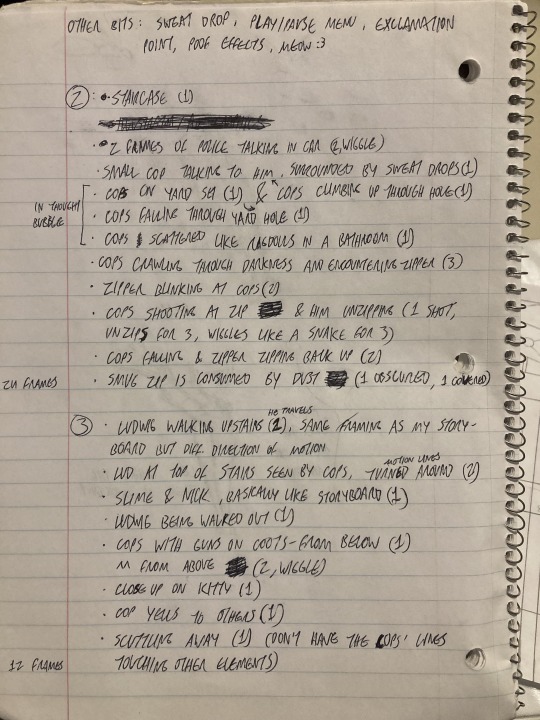 OTHER BITS: SWEAT DROP, PLAY/PAUSE MENU, EXCLAMATION
POINT, POOF EFFECTS, MEOW :3
②: • STAIRCASE (1)
• 2 FRAMES OF POLICE TALKING IN CAR (2, WIGGLE)
• SMALL COP TALKING TO HIM, SURROUNDED BY SWEAT DROPS (1)
IN THOUGHT BUBBLE
• COPS ON YARD (1) & COPS CLIMBING UP THROUGH HOLE (1)
• COPS FALLING THROUGH YARD HOLE (1)
• COPS SCATTERED LIKE RAGDOLLS IN A BATHROOM (1)
• COPS CRAWLING THROUGH DARKNESS AND ENCOUNTERING ZIPPER (3)
• ZIPPER BLINKING AT COPS (2)
• COPS SHOOTING AT ZIP & HIM UNZIPPING (1 SHOT,
UNZIPS FOR 3, WIGGLES LIKE A SNAKE FOR 3)
• COPS FALLING & ZIPPER ZIPPING BACK UP (2)
24 FRAMES
• SMUG ZIP IS CONSUMED BY DUST (1 OBSCURED, 1 COVERED)
③ • LUDWIG WALKING UPSTAIRS (2), HE TRAVELS SAME FRAMING AS MY STORY-
BOARD BUT DIFF DIRECTION OF MOTION
• LUD AT TOP OF STAIRS SEEN BY COPS, TURNED AROUND (2) MOTION LINES
• SLIME & NICK, BASICALLY LIKE STORYBOARD (1)
• LUDWIG BEING WALKED OUT (1)
• COPS WITH GUNS ON COOTS - FROM BELOW (1)
" FROM ABOVE (2, WIGGLE)
• CLOSE UP ON KITTY (1)
• COP YELLS TO OTHERS (1)
• SCUTTLING AWAY (1) (DON'T HAVE THE COPS' LINES
12 FRAMES
TOUCHING OTHER ELEMENTS)